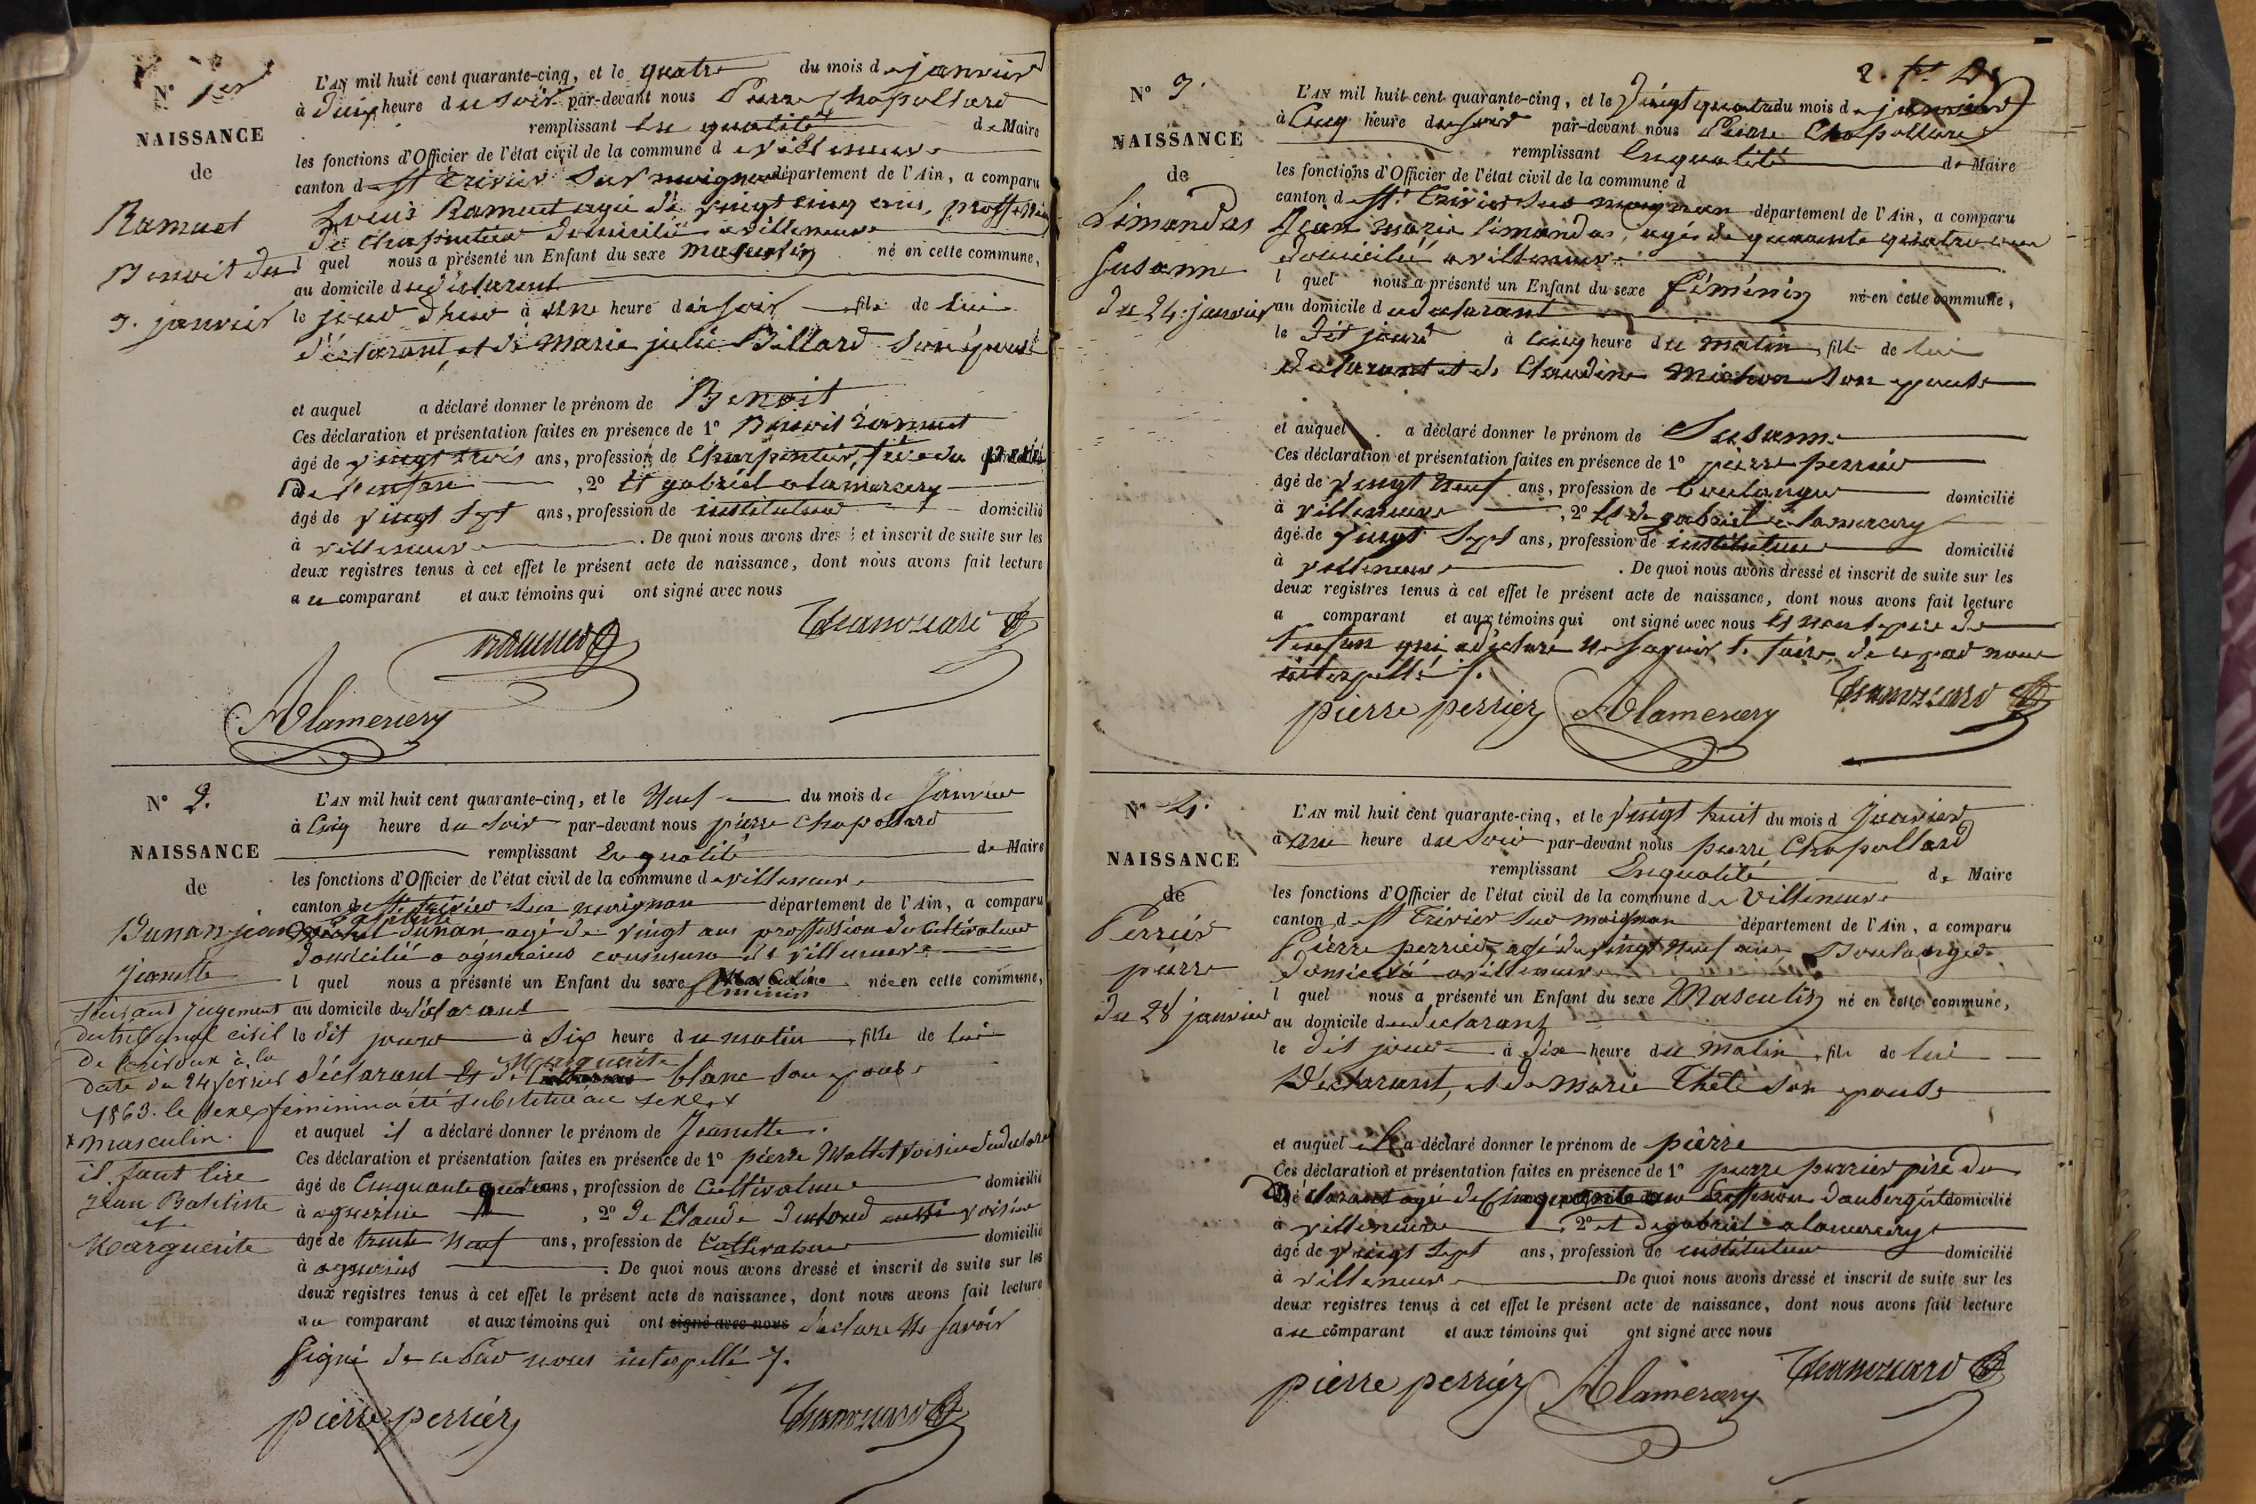 N° 1er
NAISSANCE
de
Ramuet
Benoit du
3. janvier
L'AN mil huit cent quarante-cinq, et le quatre du mois de janvier
à heure du soir par-devant nous Pierre Chapollard
remplissant en qualité de Maire
les fonctions d'Officier de l'état civil de la commune de villeneuve
canton de St Trivier Sur moignan département de l'Ain, a comparu
Louis Ramuet agé de vingt cinq ans, proffession
de Charpentier domicilié a villeneuve
l quel nous a présenté un Enfant du sexe masculin né en cette commune,
au domicile du déclarant
le jour d'hier à une heure du soir fils de lui
déclarant, et de Marie julie Billard Son épouse
et auquel a déclaré donner le prénom de Benoit
Ces déclaration et présentation faites en présence de 1° Benoit ramuet
âgé de vingt trois ans, profession de Charpentier,
de l'enfant , 2° Et gabriel alamercery
âgé de vingt Sept ans, profession de instituteur domicilié
à villeneuve . De quoi nous avons dressé et inscrit de suite sur les
deux registres tenus à cet effet le présent acte de naissance, dont nous avons fait lecture
au comparant et aux témoins qui ont signé avec nous
Alamercery
N° 2.
NAISSANCE
de
Dunan jean
Jeanette
Suivant jugement
du tribunal civil
de Trévoux à la
date du 24 fevrier
1863. le sexe féminin a été substitué au sexe x
x masculin.
il faut lire
Jean Baptiste
et
Marguerite
L'AN mil huit cent quarante-cinq, et le Neuf du mois de Janvier
à Cinq heure du Soir par-devant nous pierre Chapollard
remplissant En qualité de Maire
les fonctions d'Officier de l'état civil de la commune de villeneuve
canton de St. trivier Sur moignan département de l'Ain, a comparu
Dunan agé de vingt ans proffession de Cultivateur
domicilié a agnereins commune de villeneuve
l quel nous a présenté un Enfant du sexe féminin née en cette commune,
au domicile du déclarant
le dit jour à Six heure du matin, fille de lui
déclarant Et de Marguerite blanc Son epouse
et auquel il a déclaré donner le prénom de Jeanette.
Ces déclaration et présentation faites en présence de 1° pierre Mallet voisin du déclarant
âgé de Cinquante quatre ans, profession de Cultivateur domicilié
à , 2° de Claude aussi voisin
âgé de trente Neuf ans, profession de Cultivateur domicilié
à agnereins . De quoi nous avons dressé et inscrit de suite sur les
deux registres tenus à cet effet le présent acte de naissance, dont nous avons fait lecture
au comparant et aux témoins qui ont signé avec nous déclaré Ne savoir
Signé de ce par nous interpellé
pierre perrier
2.
N° 3.
NAISSANCE
de
Limandas
Susanne
du 24. janvier
L'AN mil huit cent quarante-cinq, et le vingt quatre du mois de janvier
à Cinq heure du soir par-devant nous Pierre Chapollard
remplissant En qualité de Maire
les fonctions d'Officier de l'état civil de la commune d
canton de St. Trivier Sur moignan département de l'Ain, a comparu
Jean Marie Limandas, agé de quarante quatre ans
domicilié a villeneuve
l quel nous a présenté un Enfant du sexe féminin né en cette commune,
au domicile du déclarant
le dit jour à Cinq heure du matin, fille de lui
déclarant et de Claudine Michon Son epouse
et auquel a déclaré donner le prénom de Susanne
Ces déclaration et présentation faites en présence de 1° pierre perrier
âgé de vingt Neuf ans, profession de boulanger domicilié
à villeneuve , 2° Et de gabriel alamercery
âgé de vingt Sept ans, profession de instituteur domicilié
à villeneuve . De quoi nous avons dressé et inscrit de suite sur les
deux registres tenus à cet effet le présent acte de naissance, dont nous avons fait lecture
a comparant et aux témoins qui ont signé avec nous Et non le pere de
l'enfan qui a déclaré Ne Savoir le faire, de ce par nous
interpellé
pierre perrier Alamercery
N° 4.
NAISSANCE
de
Perrier
pierre
du 28 janvier
L'AN mil huit cent quarante-cinq, et le vingt huit du mois d Janvier
à une heure du Soir par-devant nous pierre Chapollard
remplissant En qualité de Maire
les fonctions d'Officier de l'état civil de la commune de villeneuve
canton de St Trivier Sur moignan département de l'Ain, a comparu
Pierre perrier, agé de vingt Neuf ans, Boulanger
domicilié a villeneuve
l quel nous a présenté un Enfant du sexe Masculin né en cette commune,
au domicile du déclarant
le dit jour à dix heure du Matin, fils de lui
Déclarant, et de Marie Son epouse
et auquel il a déclaré donner le prénom de pierre
Ces déclaration et présentation faites en présence de 1° pierre perrier pere du
déclarant agé de ans proffession d'aubergiste domicilié
à villeneuve , 2° et de gabriel alamercery
âgé de vingt Sept ans, profession de instituteur domicilié
à villeneuve De quoi nous avons dressé et inscrit de suite sur les
deux registres tenus à cet effet le présent acte de naissance, dont nous avons fait lecture
au comparant et aux témoins qui ont signé avec nous
pierre perrier Alamercery